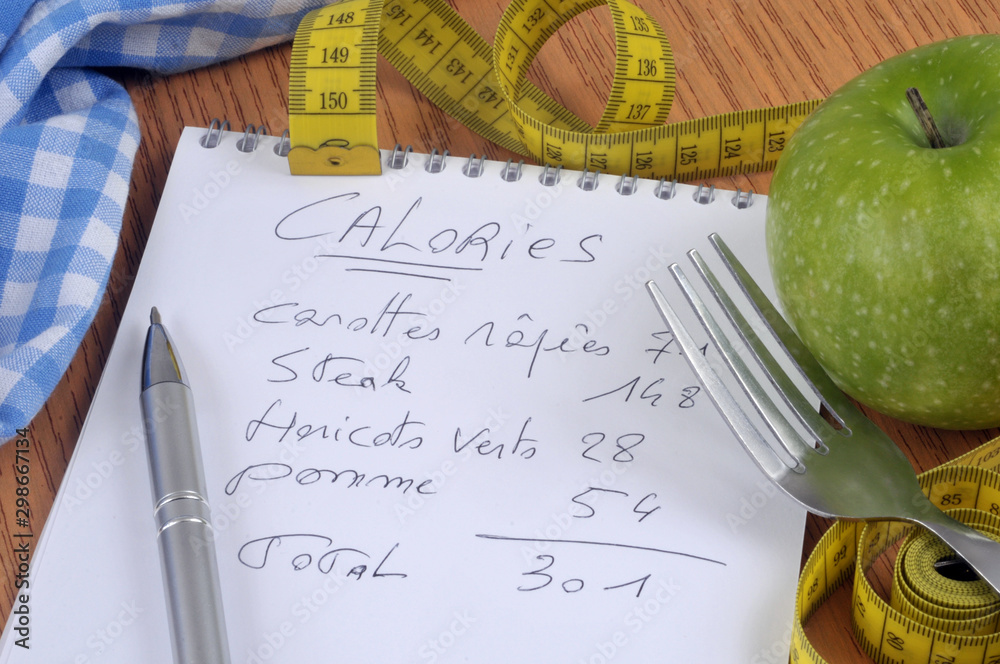 148
149
150
145 144 143 142
131 132 135 136 137
128 127 126 125 124
CALories
Carottes râpées 71
Steak 148
Haricots Verts 28
pomme 54
Total 301
85
99
98
87
90
Adobe Stock | #298667134